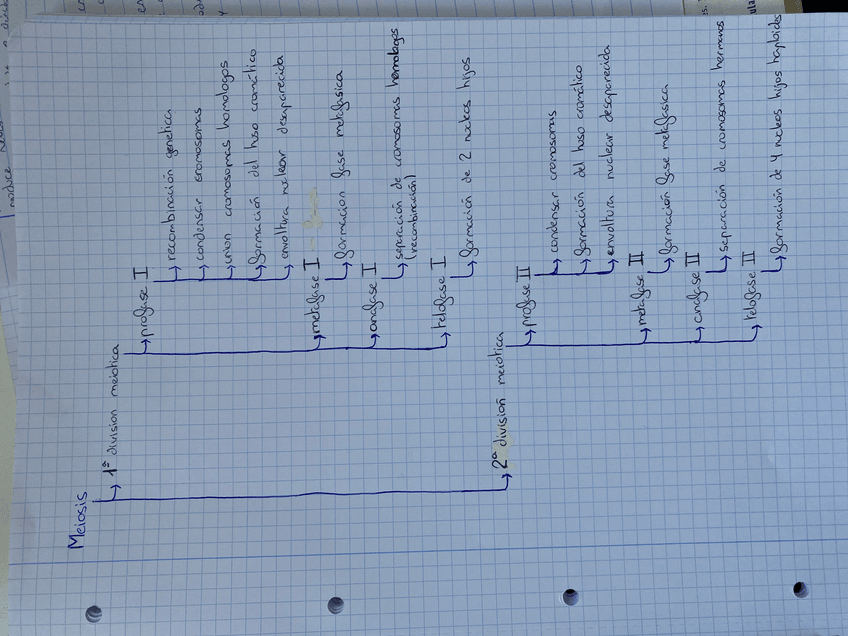 Meiosis
1ª division meiotica
profase I
recombinación genetica
condensar cromosomas
union cromosomas homologos
formación del huso cromático
envoltura nuclear desaparecida
metafase I
formacion fase metafasica
anafase I
separación de cromosomas homologos
(recombinación)
telofase I
formación de 2 nucleos hijos
2ª división meiotica
profase II
condensar cromosomas
formación del huso cromático
envoltura nuclear desaparecida
metafase II
formación fase metafasica
anafase II
separación de cromosomas hermanos
telofase II
formación de 4 nucleos hijos haploides